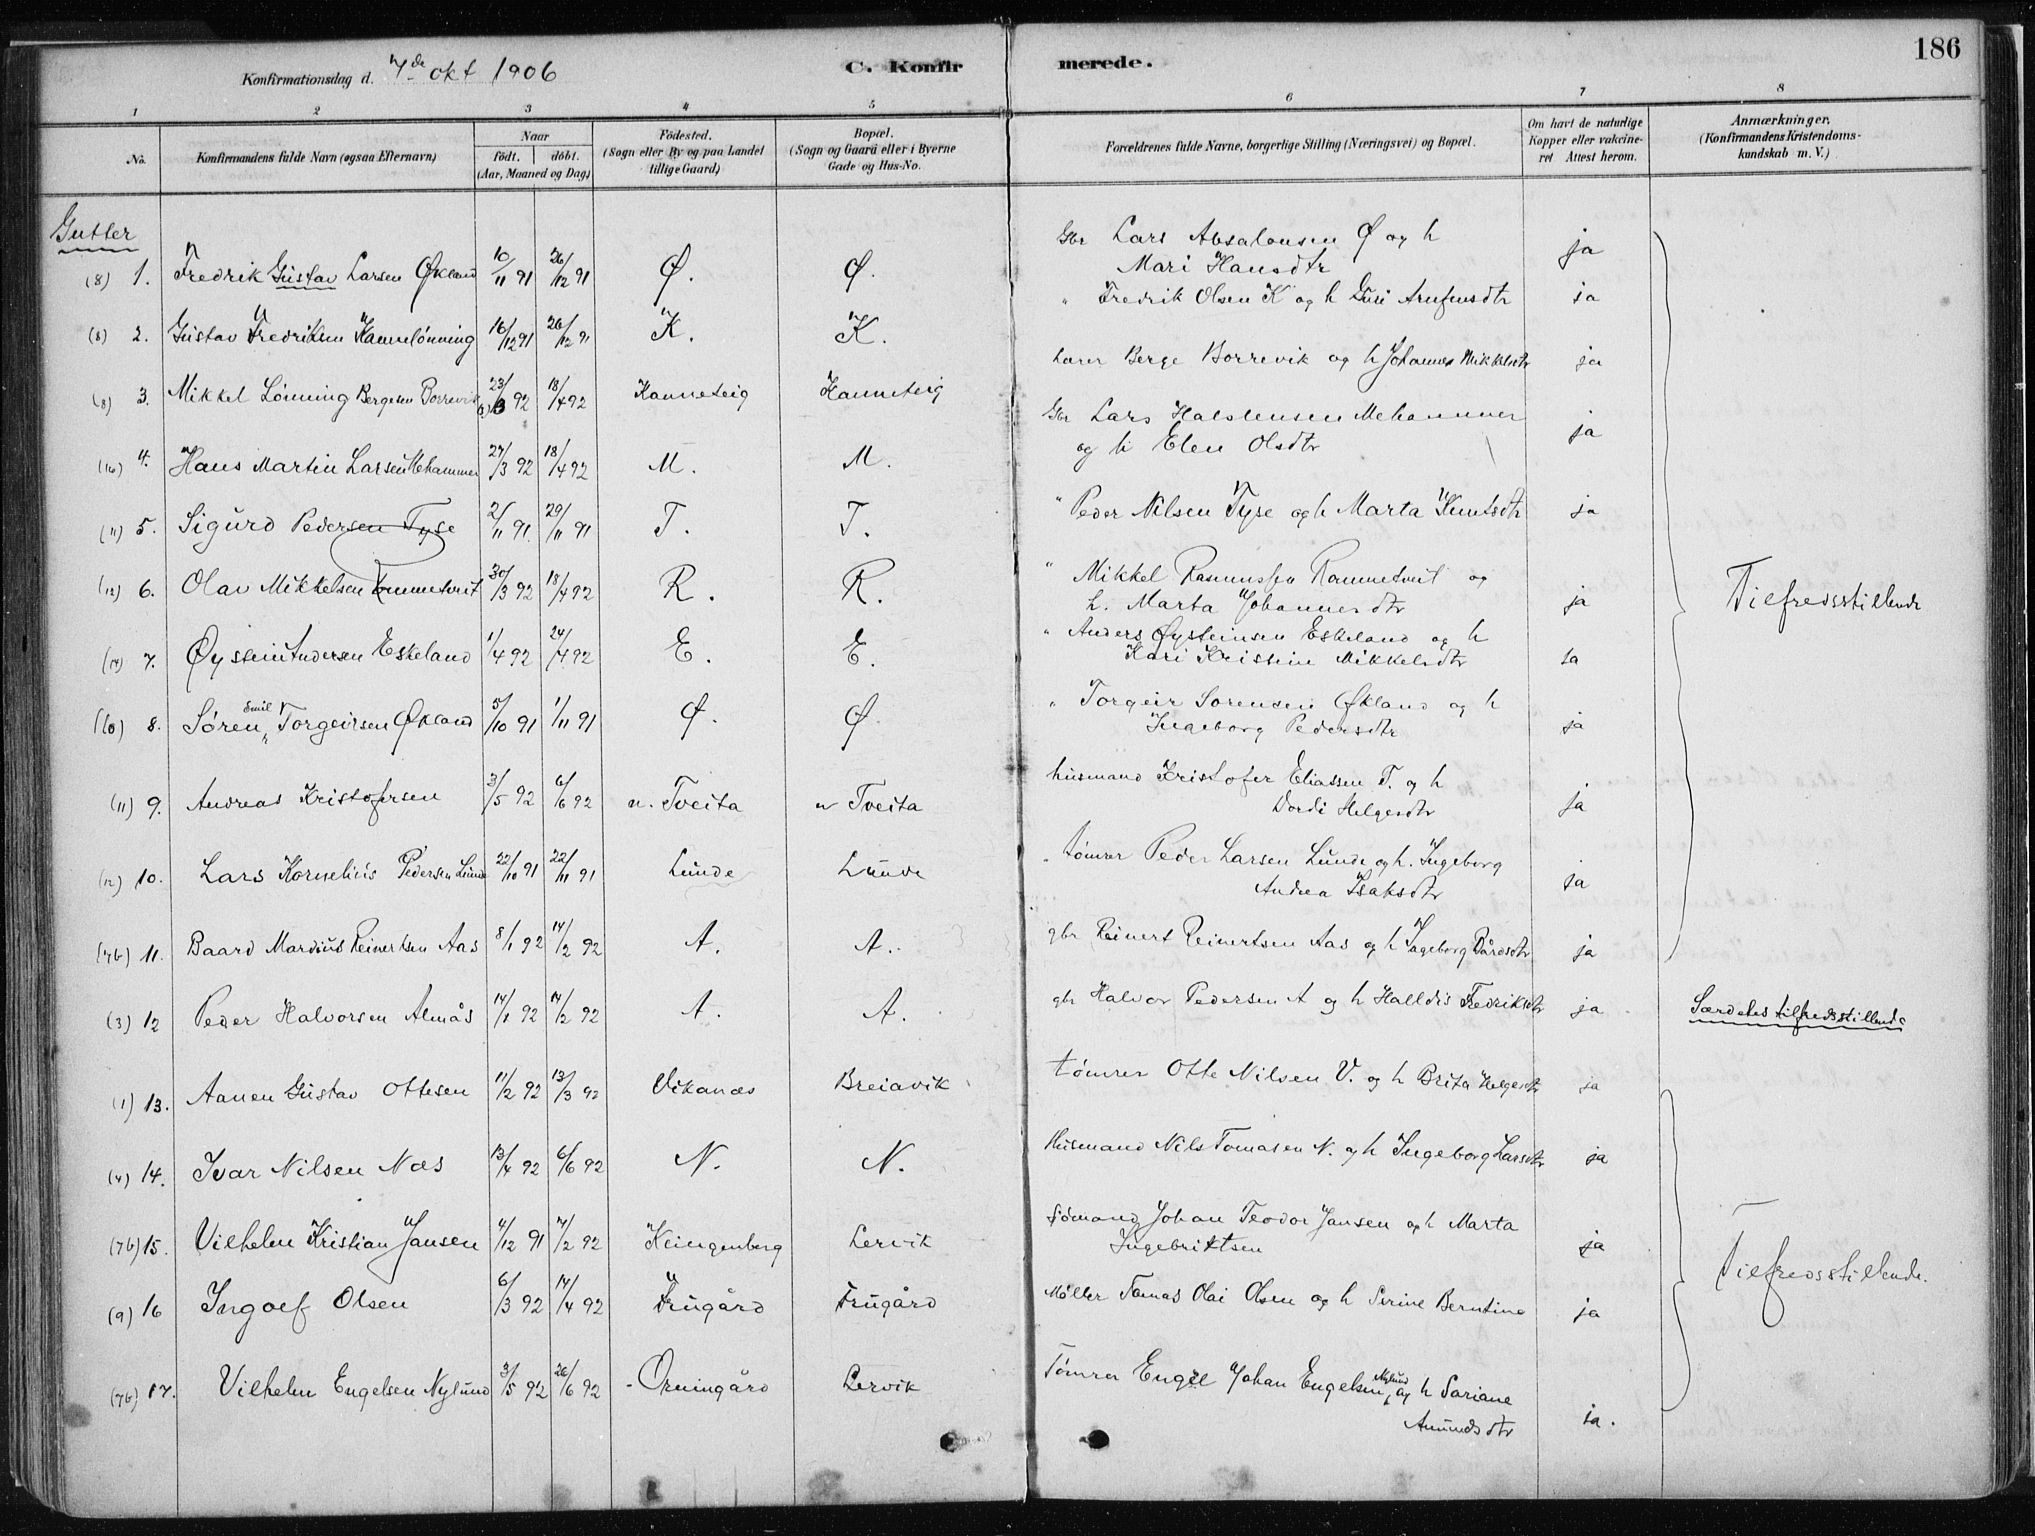 186
Konfirmationsdag d. 7de okt 1906
C. Konfirmerede.
1 2 3 4 5 6 7 8
No.
Konfirmandens fulde Navn (ogsaa Efternavn)
Naar
født. døbt.
(Aar, Maaned og Dag)
Fødested.
(Sogn eller By og paa Landet
tillige Gaard)
Bopæl.
(Sogn og Gaard eller i Byerne
Gade og Hus-No.
Forældrenes fulde Navne, borgerlige Stilling (Næringsvei) og Bopæl.
Om havt de naturlige
Kopper eller vakcine-
ret Attest herom.
Anmærkninger.
(Konfirmandens Kristendoms-
kundskab m. V.)
Gutter
(8) 1. Fredrik Gustav Larsen Økland 10/11 91 26/12 91 Ø. Ø. Gbr Lars Absalonsen Ø og h
Mari Hansdtr ja
(8) 2. Gustav Fredriksen Hannelønning 16/12 91 26/12 91 K. K. " Fredrik Olsen K og h Guri Arnfinsdtr ja
(8) 3. Mikkel Lønning Bergesen Borrevik 23/3 92 18/4 92 Kanneteig Kanneteig lærer Berge Borrevik og h Johanna Mikkelsdtr ja
(16) 4. Hans Martin Larsen Mehammer 27/3 92 18/4 92 M. M. Gbr Lars Halstensen Mehammer
og h Elen Olsdtr ja
(11) 5. Sigurd Pedersen Tyse 2/11 91 29/11 91 T. T. " Peder Nilsen Tyse og h Marta Knutsdtr ja
(12) 6. Olav Mikkelsen Rommetveit 30/3 92 18/4 92 R. R. " Mikkel Rasmussen Rommetveit og
h. Marta Johannesdtr ja
(14) 7. Øystein Andersen Eskeland 1/4 92 24/4 92 E. E. " Anders Øysteinsen Eskeland og h
Kari Kristine Mikkelsdtr ja
(10) 8. Søren Emil Torgeirsen Økland 5/10 91 1/11 91 Ø. Ø. " Torgeir Sørensen Økland og h
Ingeborg Pedersdtr ja
(11) 9. Andreas Kristofersen 3/5 92 6/6 92 u. Tveita u Tveita husmand Kristofer Eliassen T. og h
Dordi Helgesdtr ja
(12) 10. Lars Kornelius Pedersen Lunde 22/10 91 22/11 91 Lunde Lunde " tømrer Peder Larsen Lunde og h. Ingeborg
Andrea Isaksdtr ja
(7b) 11. Baard Mardius Reinertsen Aas 8/1 92 14/2 92 A. A. gbr Reinert Reinertsen Aas og h Ingeborg Bårdsdtr ja
Tilfredsstillende
(3) 12 Peder Halvorsen Almås 14/1 92 14/2 92 A. A. gbr Halvor Pedersen A og h Halldis Fredriksdtr ja Særdeles tilfredsstillende
(1) 13. Aanen Gustav Ottesen 11/2 92 13/3 92 Vikanæs Breiavik tømrer Otte Nilsen V. og h Brita Helgesdtr ja
(4) 14. Ivar Nilsen Næs 13/4 92 6/6 92 N. N. Husmand Nils Tomasen N. og h Ingeborg Larsdtr ja
(7b) 15. Vilhelm Kristian Jansen 4/12 91 7/2 92 Klingenberg Lervik sømand Johan Teodor Jansen og h Marta
Ingebriktsen ja
(9) 16 Ingolf Olsen 6/3 92 14/4 92 Frugård Frugård Møller Tomas Olai Olsen og h Serine Berntine ja
(7b) 17. Vilhelm Engelsen Nylund 3/5 92 26/6 92 Orningård Lervik Tømrer Engel Johan Engelsen Nylund og h Sariane
Amundsdtr ja.
Tilfredsstillende.